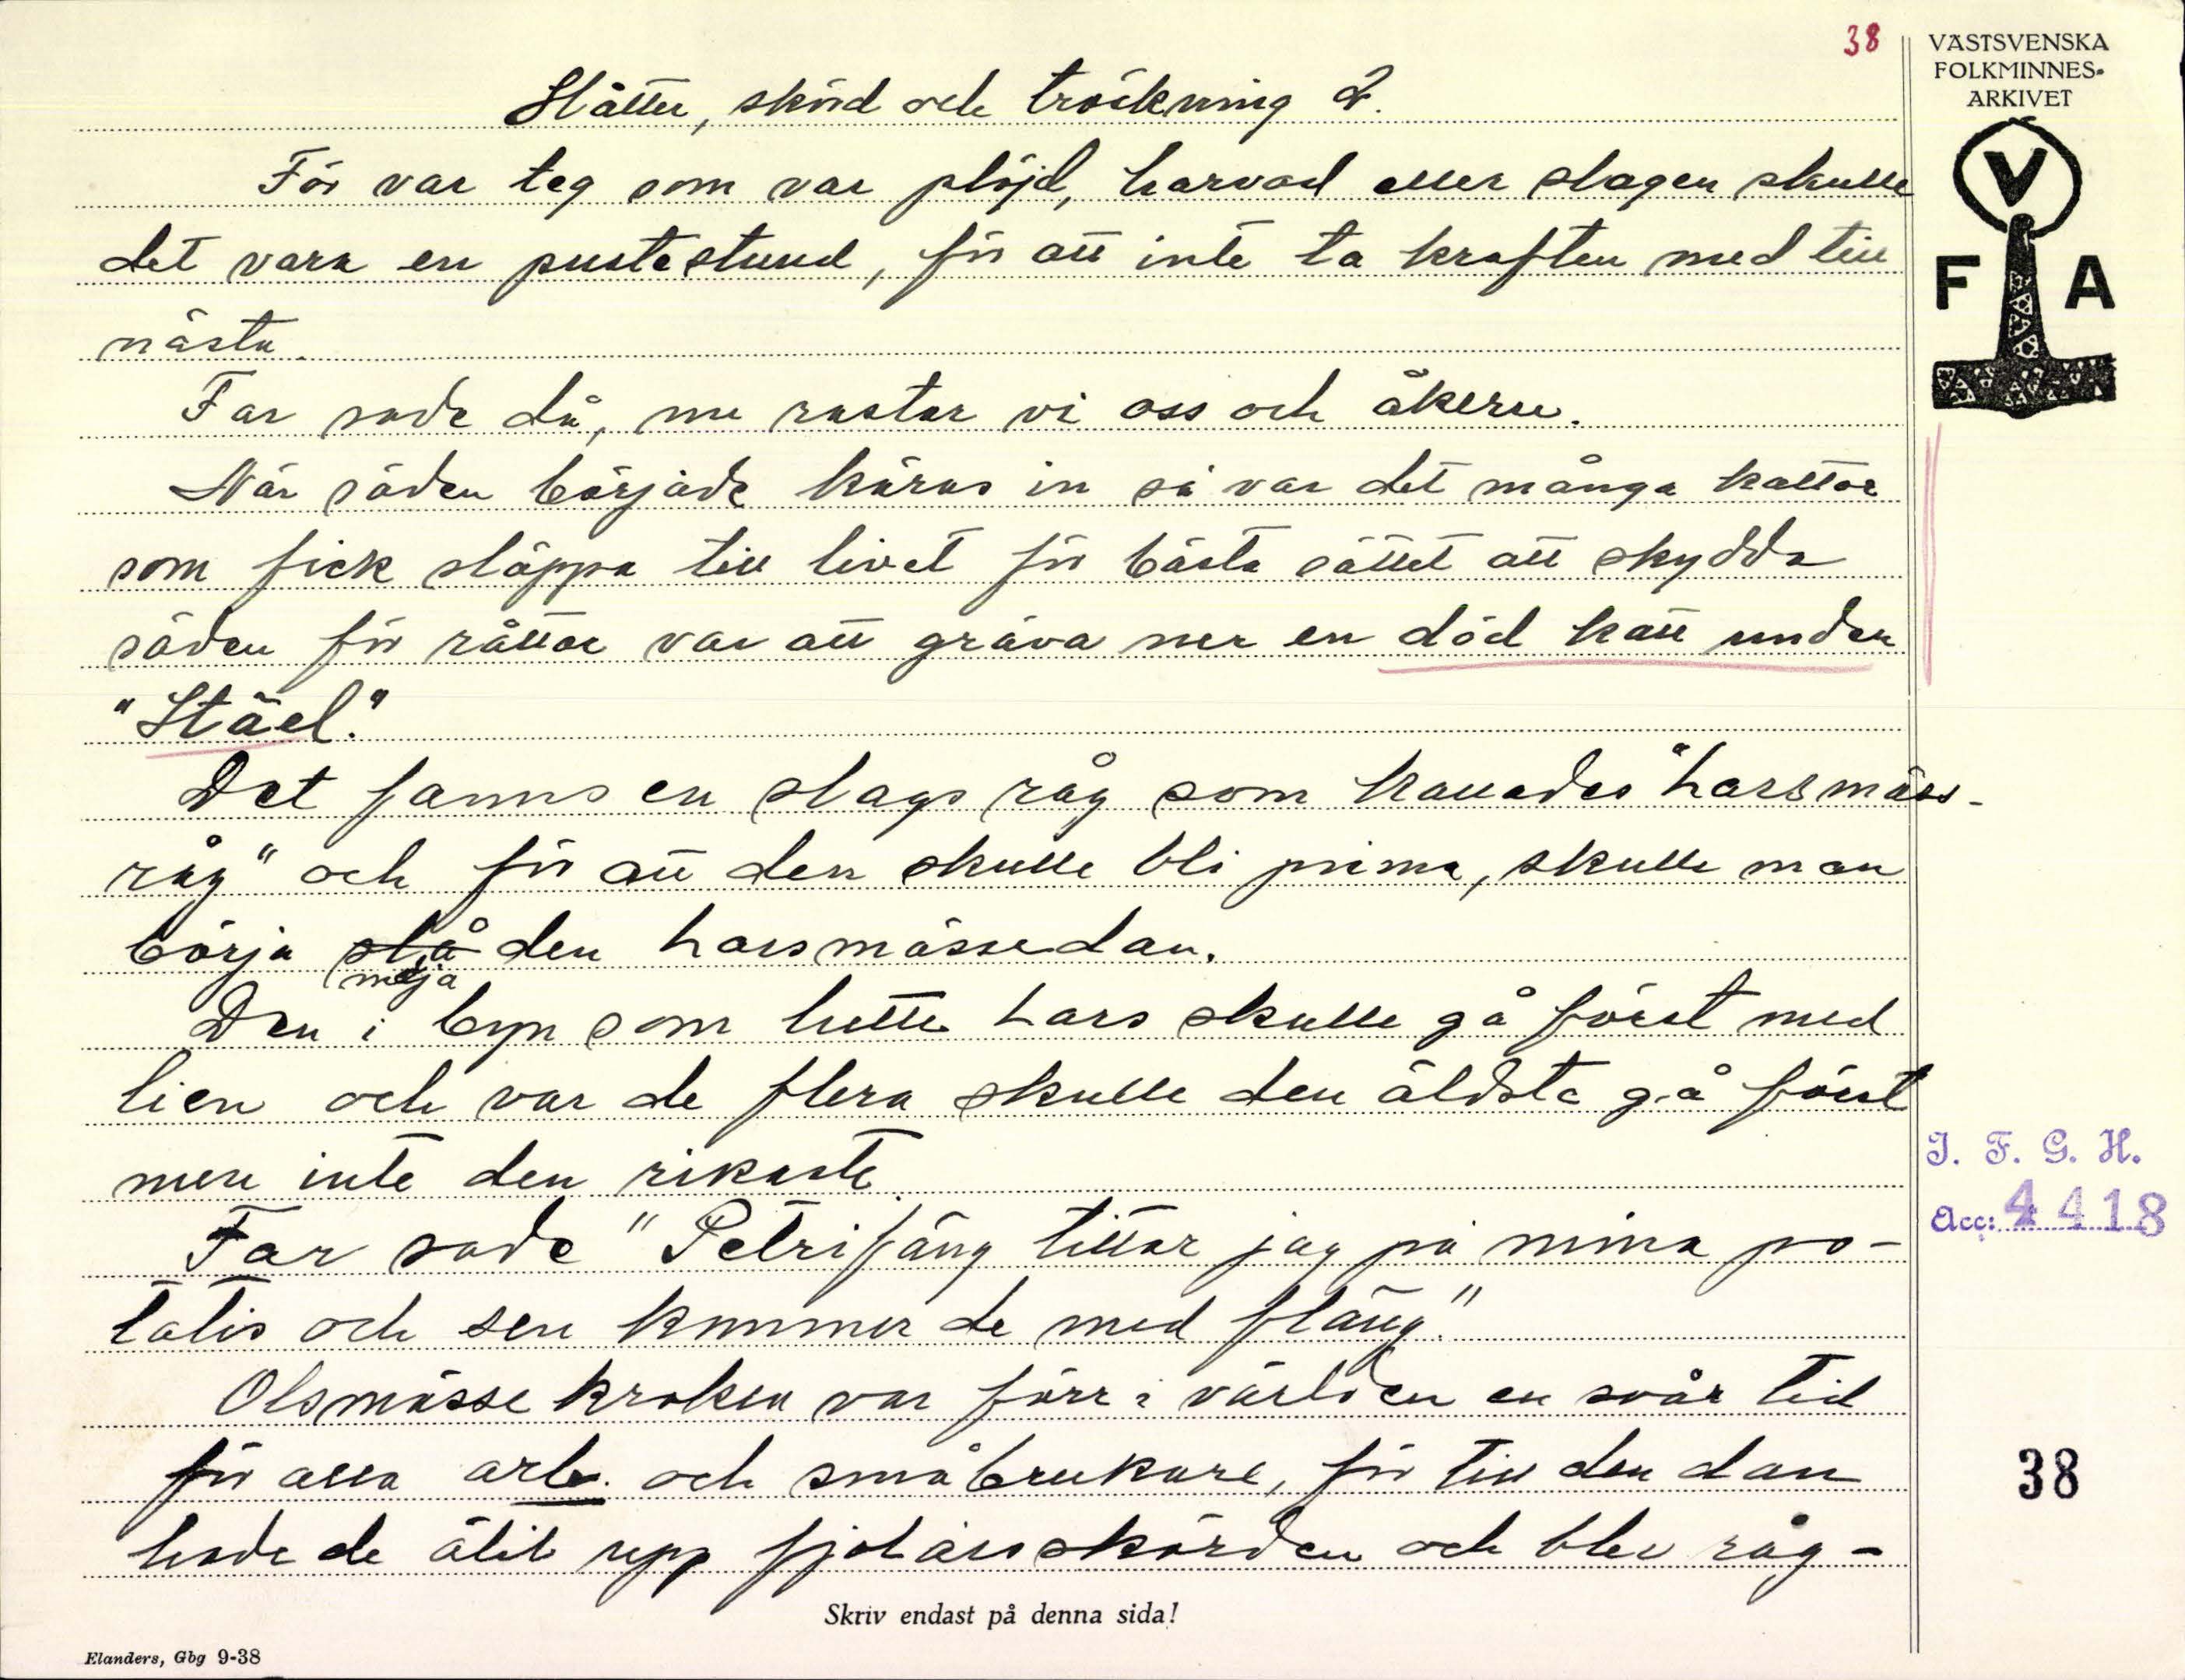 38
VÄSTSVENSKA
FOLKMINNES-
ARKIVET
V
F A
Slåtter, skörd och tröskning 2.
För var teg som var plöjd, harvad eller slagen skulle
det vara en pustestund, för att inte ta kraften med till
nästa.
Far sade då, nu rastar vi oss och åkern.
När säden började köras in så var det många kattor
som fick släppa till livet för bästa sättet att skydda
säden för råttor var att gräva ner en död katt under
"Stäel."
Det fanns en slags råg som kallades "Larsmäss-
råg" och för att den skulle bli prima, skulle man
börja slå den Larsmässedan.
meja
Den i byn som hette Lars skulle gå först med
lien och var de flera skulle den äldsta gå först
men inte den rikaste.
Far sade "Petrifäng tittar jag på mina po-
tatis och sen kommer de med fläng."
Olsmässekroken var förr i världen en svår tid
för alla arb. och småbrukare, för till den dan
hade de ätit upp fjolårsskörden och blev råg-
I. F. G. H.
Acc: 4418
38
Skriv endast på denna sida!
Elanders, Gbg 9-38